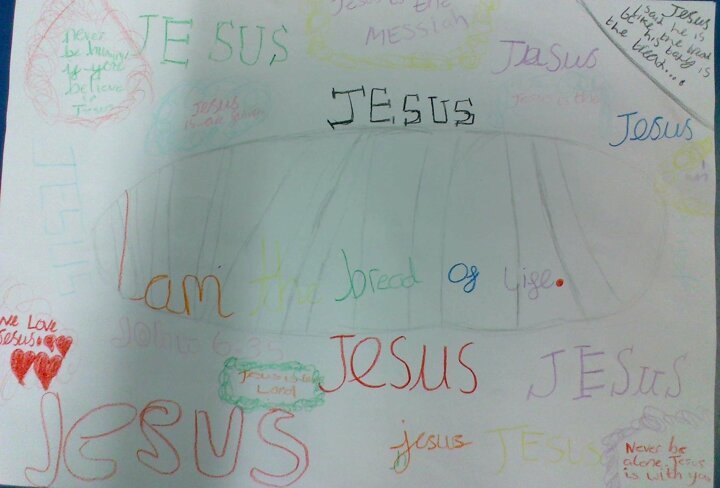 Never
be hungry
if you
believe
in
Jesus
JESUS
Jesus is the
MESSIAH
Jesus
Jesus
said he is
like the bread
his body is
the bread....
Jesus
JESUS
Jesus is the
Jesus
I
am
JESUS
I am the bread of life.
John 6:35
We Love
Jesus
Jesus is the
Lord
JESUS
JESUS
JESUS
jesus
JESUS
Never be
alone. Jesus
is with you